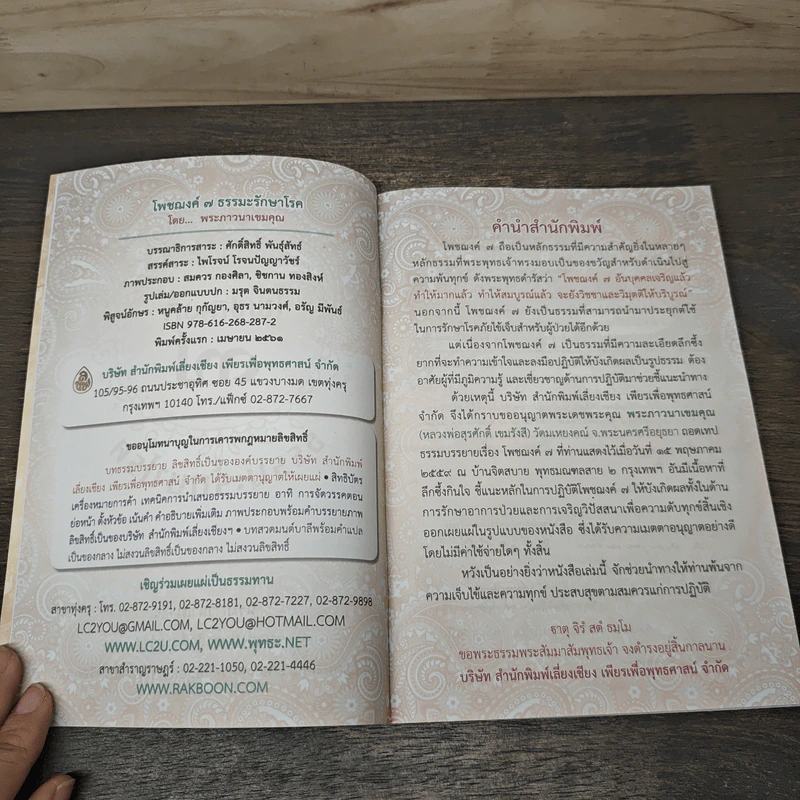 โพชฌงค์ ๗ ธรรมะรักษาโรค
โดย... พระภาวนาเขมคุณ
บรรณาธิการสาระ : ศักดิ์สิทธิ์ พันธุ์สัทธ์
สรรค์สาระ : ไพโรจน์ โรจนปัญญาวัชร์
ภาพประกอบ : สมควร กองศิลา, ชิชกาน ทองสิงห์
รูปเล่ม/ออกแบบปก : มรุต จินตนธรรม
พิสูจน์อักษร : หนูคล้าย กุกัญยา, อุธร นามวงศ์, อรัญ มีพันธ์
ISBN 978-616-268-287-2
พิมพ์ครั้งแรก : เมษายน ๒๕๖๑
บริษัท สำนักพิมพ์เลี่ยงเชียง เพียรเพื่อพุทธศาสน์ จำกัด
105/95-96 ถนนประชาอุทิศ ซอย 45 แขวงบางมด เขตทุ่งครุ
กรุงเทพฯ 10140 โทร./แฟ็กซ์ 02-872-7667
ขออนุโมทนาบุญในการเคารพกฎหมายลิขสิทธิ์
บทธรรมบรรยาย ลิขสิทธิ์เป็นขององค์บรรยาย บริษัท สำนักพิมพ์
เลี่ยงเชียง เพียรเพื่อพุทธศาสน์ จำกัด ได้รับเมตตาอนุญาตให้เผยแผ่ • สิทธิบัตร
เครื่องหมายการค้า เทคนิคการนำเสนอธรรมบรรยาย อาทิ การจัดวรรคตอน
ย่อหน้า ตั้งหัวข้อ เน้นคำ คำอธิบายเพิ่มเติม ภาพประกอบพร้อมคำบรรยายภาพ
ลิขสิทธิ์เป็นของบริษัท สำนักพิมพ์เลี่ยงเชียงฯ • บทสวดมนต์บาลีพร้อมคำแปล
เป็นของกลาง ไม่สงวนลิขสิทธิ์เป็นของกลาง ไม่สงวนลิขสิทธิ์
เชิญร่วมเผยแผ่เป็นธรรมทาน
สาขาทุ่งครุ : โทร. 02-872-9191, 02-872-8181, 02-872-7227, 02-872-9898
LC2YOU@GMAIL.COM, LC2YOU@HOTMAIL.COM
WWW.LC2U.COM, WWW.พุทธะ.NET
สาขาสำราญราษฎร์ : 02-221-1050, 02-221-4446
WWW.RAKBOON.COM
คำนำสำนักพิมพ์
โพชฌงค์ ๗ ถือเป็นหลักธรรมที่มีความสำคัญยิ่งในหลายๆ
หลักธรรมที่พระพุทธเจ้าทรงมอบเป็นของขวัญสำหรับดำเนินไปสู่
ความพ้นทุกข์ ดังพระพุทธดำรัสว่า "โพชฌงค์ ๗ อันบุคคลเจริญแล้ว
ทำให้มากแล้ว ทำให้สมบูรณ์แล้ว จะยังวิชชาและวิมุตติให้บริบูรณ์"
นอกจากนี้ โพชฌงค์ ๗ ยังเป็นธรรมที่สามารถนำมาประยุกต์ใช้
ในการรักษาโรคภัยไข้เจ็บสำหรับผู้ป่วยได้อีกด้วย
แต่เนื่องจากโพชฌงค์ ๗ เป็นธรรมที่มีความละเอียดลึกซึ้ง
ยากที่จะทำความเข้าใจและลงมือปฏิบัติให้บังเกิดผลเป็นรูปธรรม ต้อง
อาศัยผู้ที่มีภูมิความรู้ และเชี่ยวชาญด้านการปฏิบัติมาช่วยชี้แนะนำทาง
ด้วยเหตุนี้ บริษัท สำนักพิมพ์เลี่ยงเชียง เพียรเพื่อพุทธศาสน์
จำกัด จึงได้กราบขออนุญาตพระเดชพระคุณ พระภาวนาเขมคุณ
(หลวงพ่อสุรศักดิ์ เขมรังสี) วัดมเหยงคณ์ จ.พระนครศรีอยุธยา ถอดเทป
ธรรมบรรยายเรื่อง โพชฌงค์ ๗ ที่ท่านแสดงไว้เมื่อวันที่ ๑๕ พฤษภาคม
๒๕๕๙ ณ บ้านจิตสบาย พุทธมณฑลสาย ๒ กรุงเทพฯ อันมีเนื้อหาที่
ลึกซึ้งกินใจ ชี้แนะหลักในการปฏิบัติโพชฌงค์ ๗ ให้บังเกิดผลทั้งในด้าน
การรักษาอาการป่วยและการเจริญวิปัสสนาเพื่อความดับทุกข์สิ้นเชิง
ออกเผยแผ่ในรูปแบบของหนังสือ ซึ่งได้รับความเมตตาอนุญาตอย่างดี
โดยไม่มีค่าใช้จ่ายใดๆ ทั้งสิ้น
หวังเป็นอย่างยิ่งว่าหนังสือเล่มนี้ จักช่วยนำทางให้ท่านพ้นจาก
ความเจ็บไข้และความทุกข์ ประสบสุขตามสมควรแก่การปฏิบัติ
ฐาตุ จิรํ สตํ ธมฺโม
ขอพระธรรมพระสัมมาสัมพุทธเจ้า จงดำรงอยู่สิ้นกาลนาน
บริษัท สำนักพิมพ์เลี่ยงเชียง เพียรเพื่อพุทธศาสน์ จำกัด